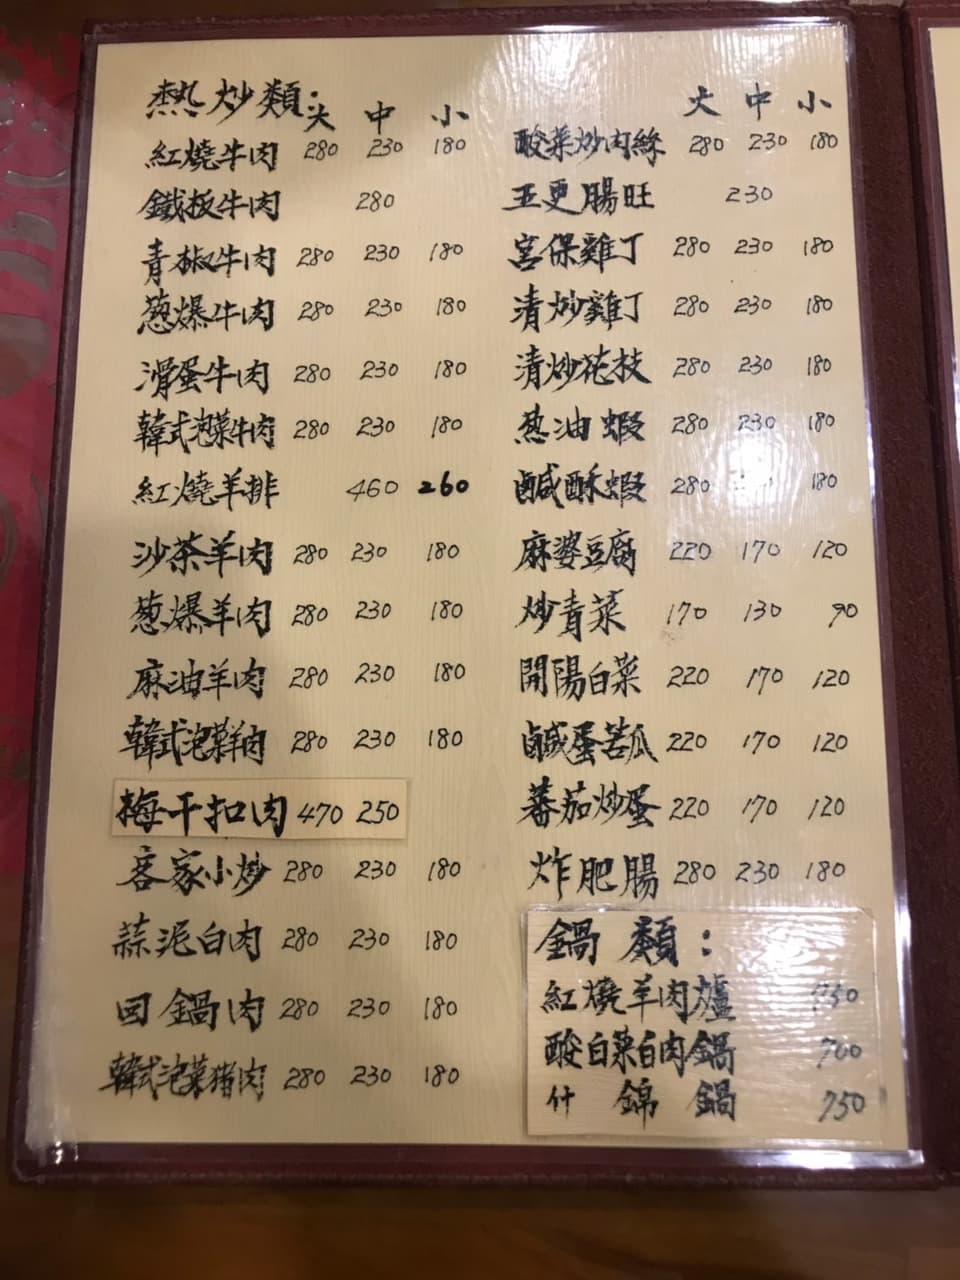 熱炒類: 大 中 小
紅燒牛肉 280 230 180
鐵板牛肉 280
青椒牛肉 280 230 180
葱爆牛肉 280 230 180
滑蛋牛肉 280 230 180
韓式泡菜牛肉 280 230 180
紅燒羊排 460 260
沙茶羊肉 280 230 180
葱爆羊肉 280 230 180
麻油羊肉 280 230 180
韓式泡菜羊肉 280 230 180
梅干扣肉 470 250
客家小炒 280 230 180
蒜泥白肉 280 230 180
回鍋肉 280 230 180
韓式泡菜豬肉 280 230 180
大 中 小
酸菜炒肉絲 280 230 180
五更腸旺 230
宮保雞丁 280 230 180
清炒雞丁 280 230 180
清炒花枝 280 230 180
葱油蝦 280 230 180
鹹酥蝦 280 180
麻婆豆腐 220 170 120
炒青菜 170 130 90
開陽白菜 220 170 120
鹹蛋苦瓜 220 170 120
蕃茄炒蛋 220 170 120
炸肥腸 280 230 180
鍋類:
紅燒羊肉爐
酸白菜白肉鍋 700
什錦鍋 750